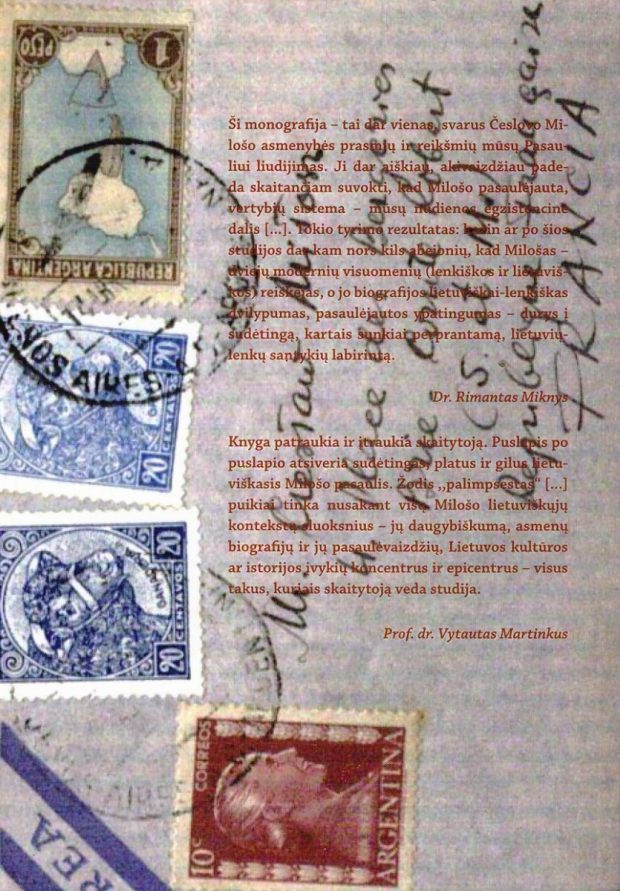 1
PESO
REPUBLICA ARGENTINA
Ši monografija – tai dar vienas, svarus Česlovo Mi-
lošo asmenybės prasmių ir reikšmių mūsų Pasau-
liui liudijimas. Ji dar aiškiau, akivaizdžiau pade-
da skaitančiam suvokti, kad Milošo pasaulėjauta,
vertybių sistema – mūsų nūdienos egzistencinė
dalis [...]. Tokio tyrimo rezultatas: kažin ar po šios
studijos dar kam nors kils abejonių, kad Milošas –
dviejų modernių visuomenių (lenkiškos ir lietuviš-
kos) reiškėjas, o jo biografijos lietuviškai-lenkiškas
dvilypumas, pasaulėjautos ypatingumas – durys į
sudėtingą, kartais sunkiai perprantamą, lietuvių-
lenkų santykių labirintą.
Dr. Rimantas Miknys
Knyga patraukia ir įtraukia skaitytoją. Puslapis po
puslapio atsiveria sudėtingas, platus ir gilus lietu-
viškasis Milošo pasaulis. Žodis „palimpsestas“ [...]
puikiai tinka nusakant visų Milošo lietuviškųjų
kontekstų sluoksnius – jų daugybiškumą, asmenų
biografijų ir jų pasaulėvaizdžių, Lietuvos kultūros
ar istorijos įvykių koncentrus ir epicentrus – visus
takus, kuriais skaitytoją veda studija.
Prof. dr. Vytautas Martinkus
FRANCIA
AIRES
20
CENTAVOS
20
20
CENTAVOS
20
CORREOS
10c
ARGENTINA
REA